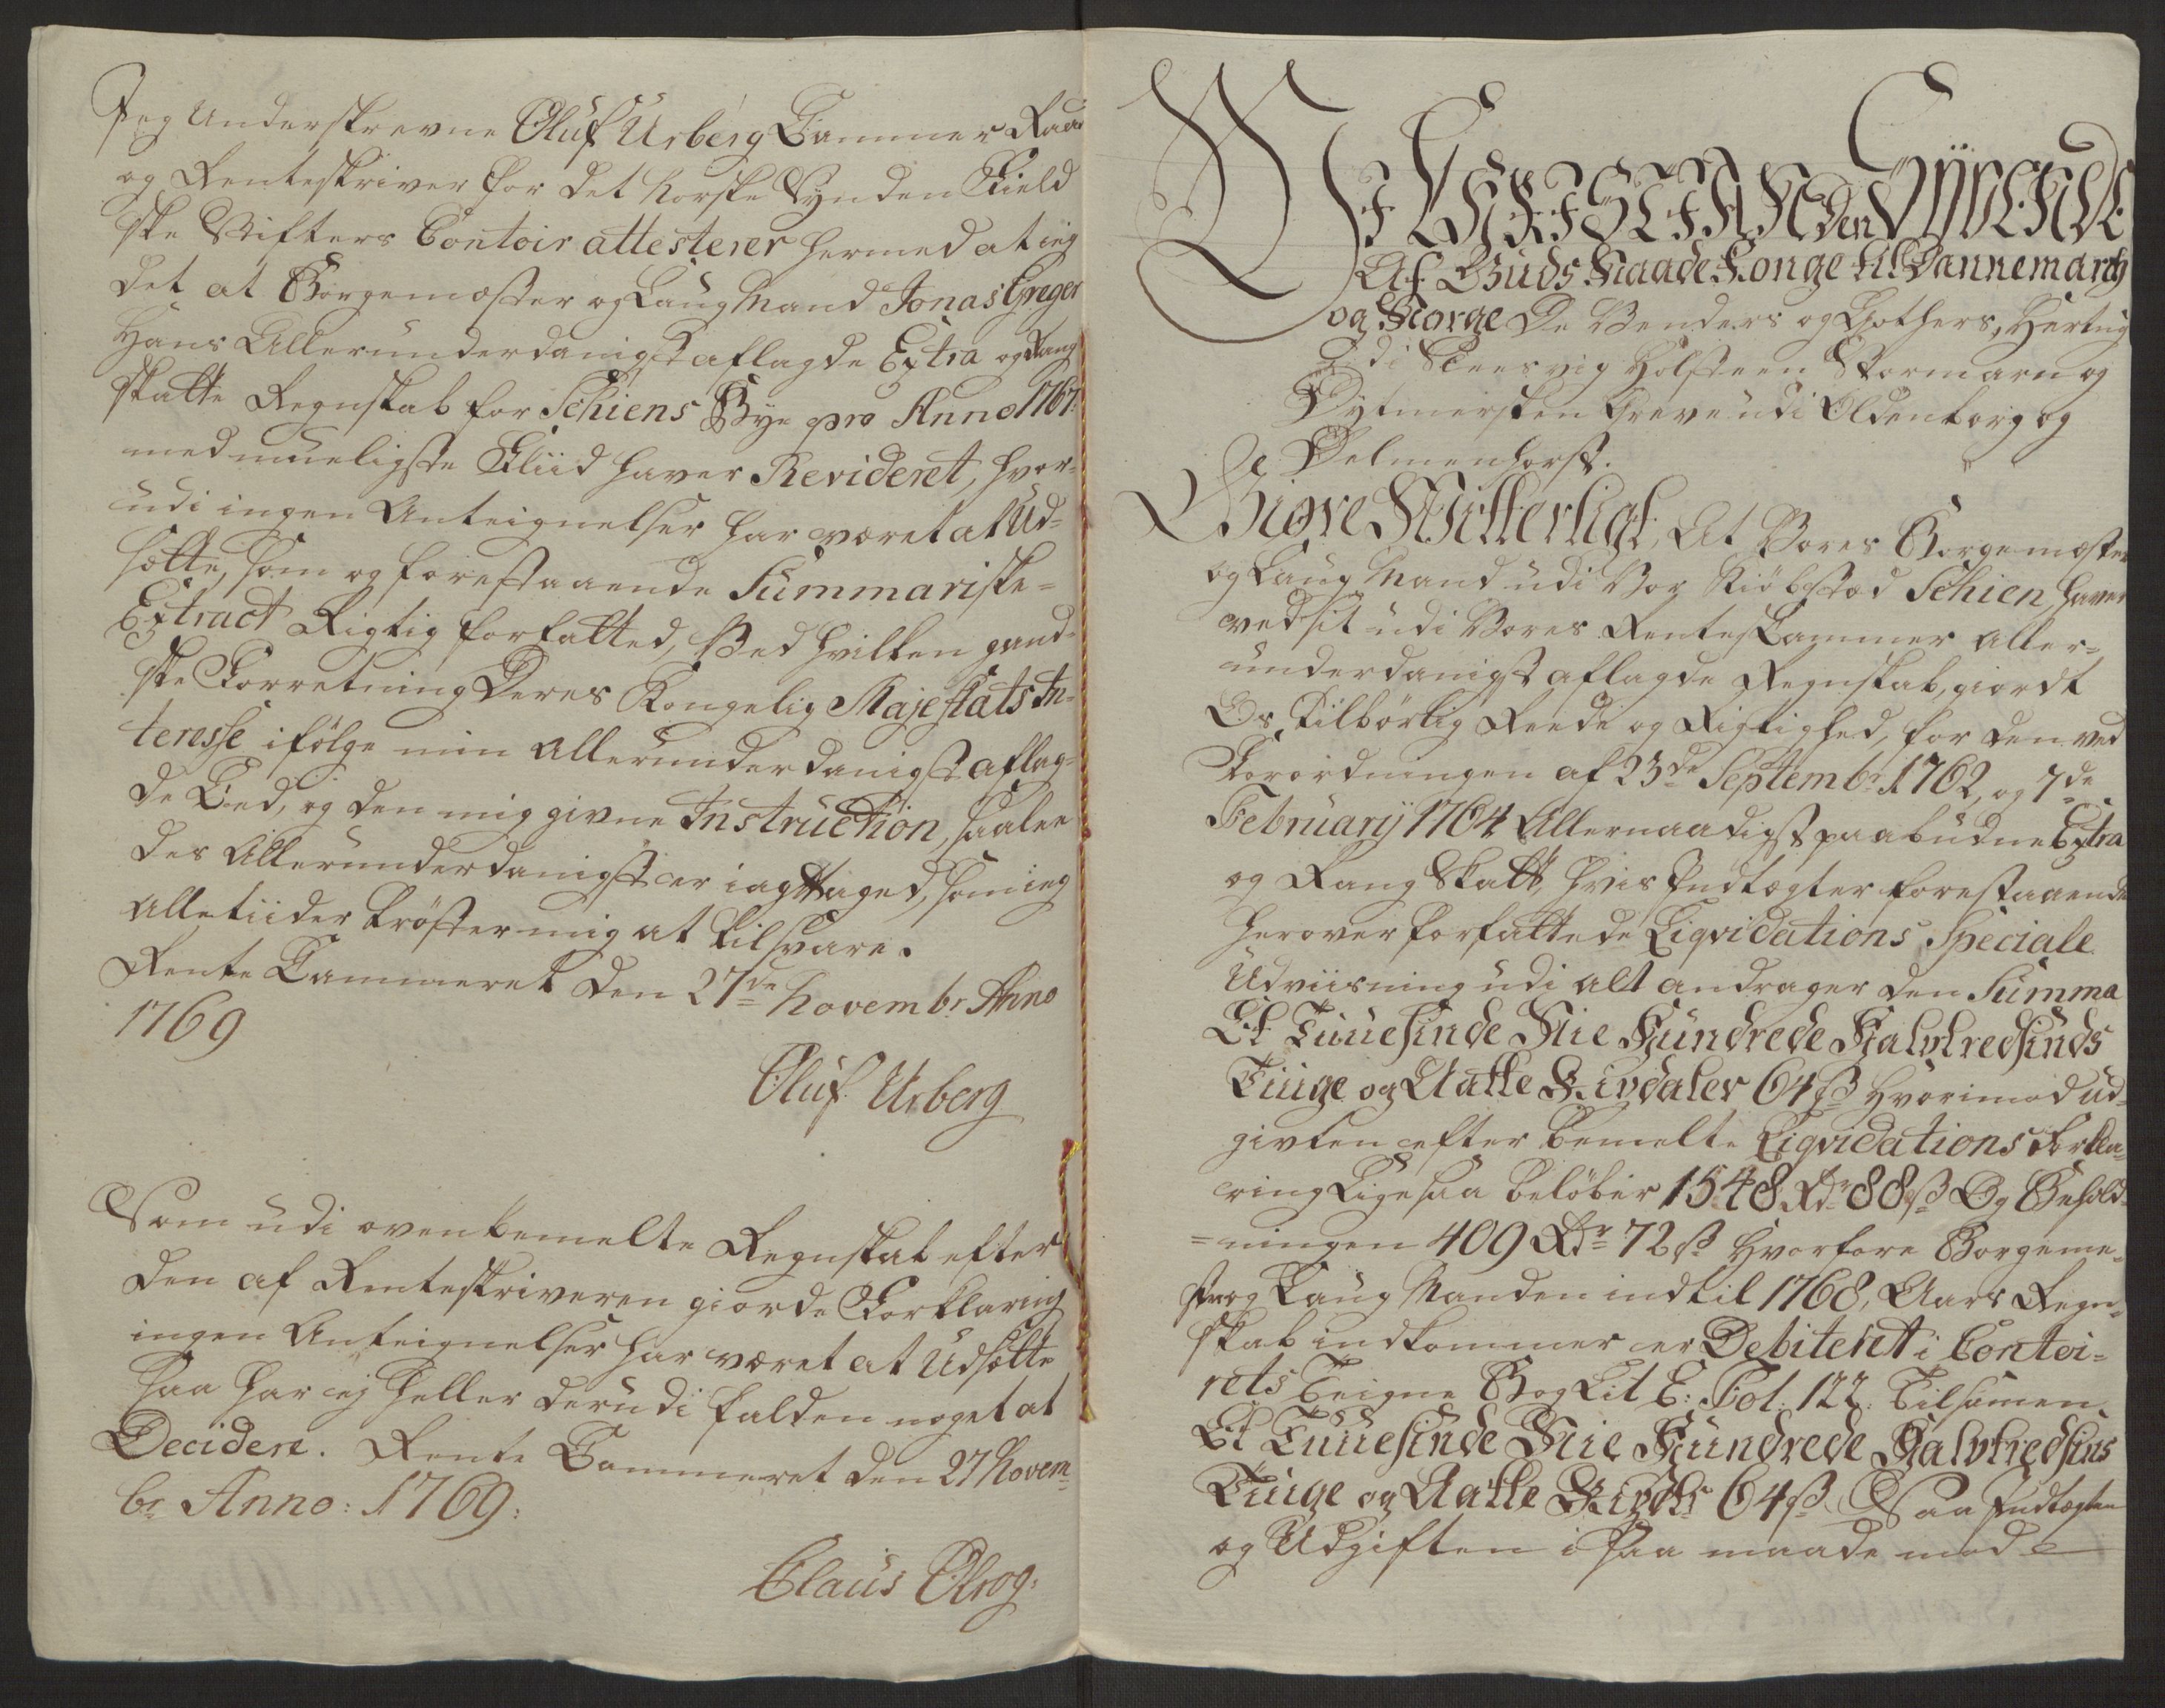 Jeg Underskrevne Oluf Urberg Cammer Raad
og Renteskriver for det Norske Synden Field
ske Stifters Contoir attesterer hermed at ieg
det at Borgemæster og Laug Mand Jonas Greger
Hans Allerunderdanigst aflagde Extra og Rang
skatte Regnskab for Schiens Bye pro Anno 1767.
med mueligste Fliid haver Revideret, hvor-
udi ingen Anteignelser har været at Ud-
sætte, som og forestaaende Summariske-
Extract Rigtig forfatted, Ved hvilken gand-
ske Forretning Deres Kongelig Majestæts In-
teresse ifölge min Allerunderdanigst aflag-
de Eed, og den mig givne Instruction, saalee
des Allerunderdanigst er iagttaged, som ieg
Alletiider tröster mig at tilsvare.
Rente Cammeret den 27de Novembr. Anno
1769
Oluf Urberg
Som udi ovenbemelte Regnskab efter
den af Renteskriveren giorde Forklaring
ingen Anteignelser har været at Udsætte
saa har ej heller derudi falden noget at
Decidere. Rente Cammeret den 27 Novem-
br. Anno: 1769:
Claus Olrog:
Wi CHRISTIAN Den SYVENDE
Af Guds Naade Konge til Dannemarch
og Norge De Venders og Gothers, Hertug
udi Sleesvig Holsteen Stormarn og
Dytmersken Greve udi Oldenborg og
Delmenhorst.
Giøre Witterligt, At Vores Borgemæster
og Laug Mand udi Vor Kiöbstæd Schien haver
ved sit udi Vores Rentes Cammer Aller-
underdanigst aflagde Regnskab, giordt
Os tilbörlig Reede og Rigtighed, for den ved
Forordningen af 23de Septembr. 1762, og 7de
February 1764 Allernaadigst paabudne Extra
og Rang Skatt, hvis Indtægter forestaaende
herover forfattede Liqvidations Speciale
Udviisning udi alt andrager den Summa
Et Tuuesinde Nie Hundrede Halvtredsinds
Tiuge og Aatte Rixdaler 64 ß Hvorimod Ud-
givten efter bemelte Liqvidations Forkla-
ring Ligesaa belöber 1548 Rdr 88 ß Og Behold-
=ningen 409 Rdr 72 ß Hvorfore Borgeme-
ster og Laug Manden indtil 1768, Aars Regn-
skab indkommer er Debiteret i Contoi-
rets Teigne Bog Lit E: Fol: 122: Tilsamen
Et Tuuesinde Nie Hundrede Halvtredsins
Tiuge og Aatte Rixdlr 64 ß Saa Indtægten
og Udgiften i saa maade mod